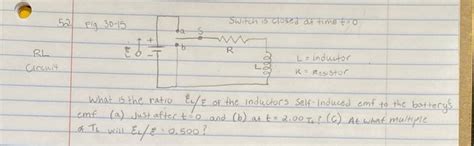 52. Fig. 30-15
Switch is closed at time t=0
a
S
+
ℰ
-
b
R
L
RL
Circuit
L = inductor
R = resistor
What is the ratio ℰL/ℰ of the inductors self-induced emf to the battery's
emf (a) Just after t=0 and (b) at t = 2.00 τL? (c) At what multiple
of τL will ℰL/ℰ = 0.500?